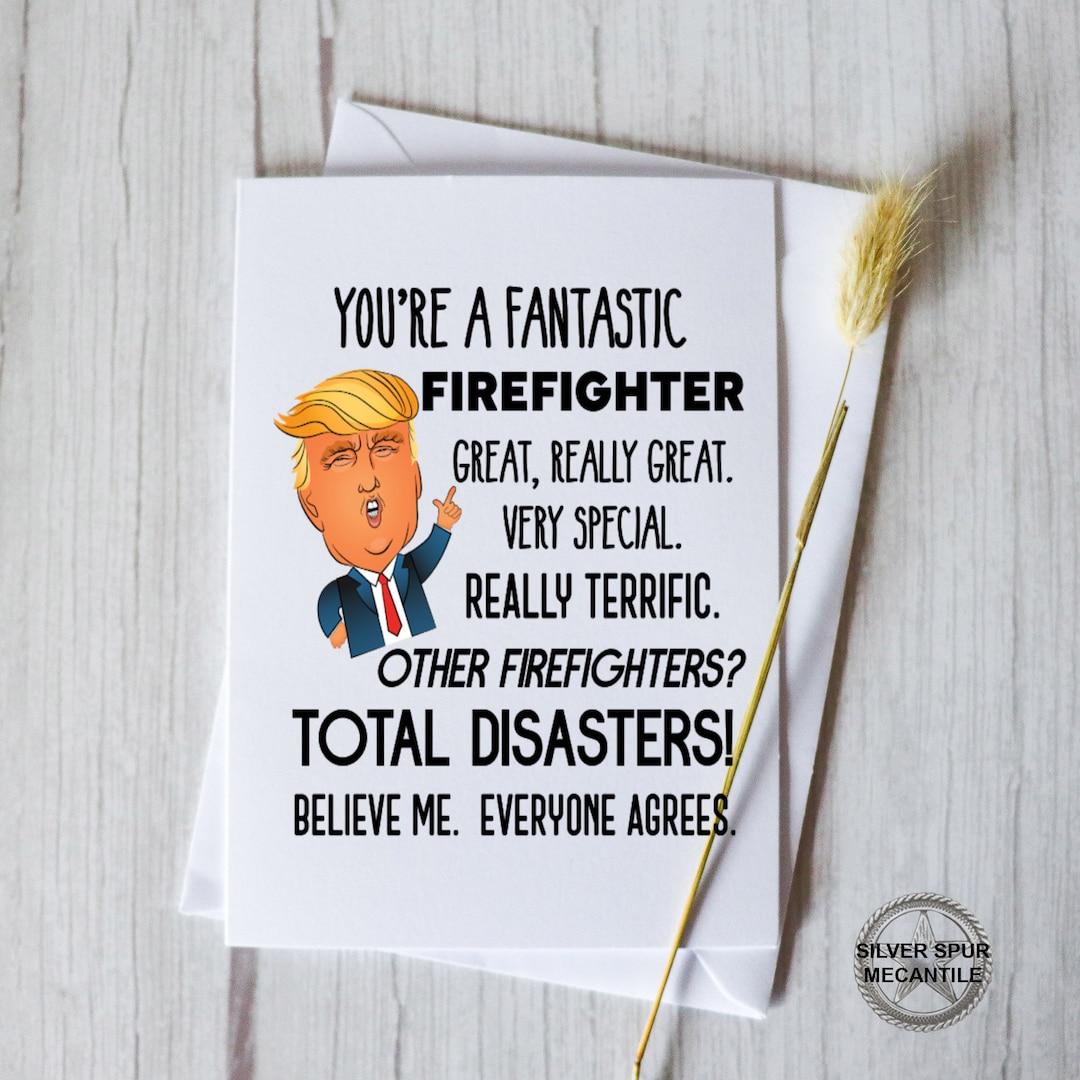 YOU'RE A FANTASTIC
FIREFIGHTER
GREAT, REALLY GREAT.
VERY SPECIAL.
REALLY TERRIFIC.
OTHER FIREFIGHTERS?
TOTAL DISASTERS!
BELIEVE ME. EVERYONE AGREES.
SILVER SPUR
MECANTILE